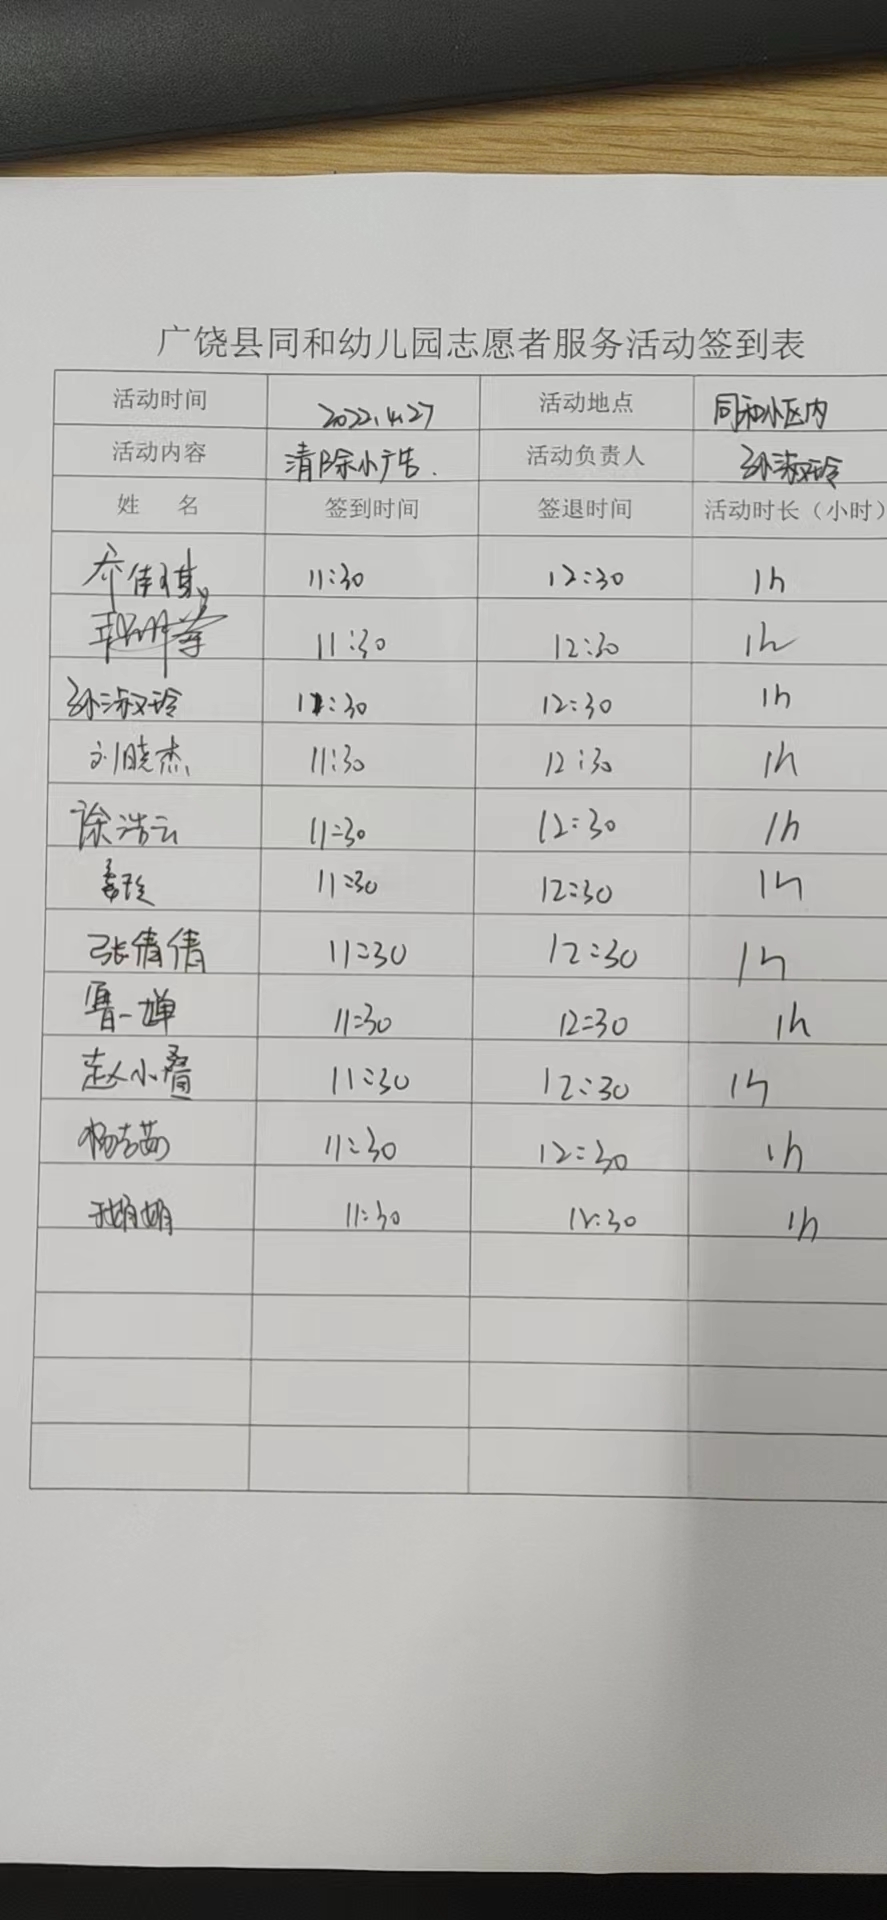 广饶县同和幼儿园志愿者服务活动签到表
活动时间 2022.4.27 活动地点 同和小区内
活动内容 清除小广告. 活动负责人 孙淑玲
姓 名 签到时间 签退时间 活动时长（小时）
乔倩琪 11:30 12:30 1h
11:30 12:30 1h
孙淑玲 11:30 12:30 1h
刘晓杰 11:30 12:30 1h
徐浩云 11:30 12:30 1h
11:30 12:30 1h
张倩倩 11:30 12:30 1h
11:30 12:30 1h
赵小叠 11:30 12:30 1h
杨志茹 11:30 12:30 1h
11:30 12:30 1h